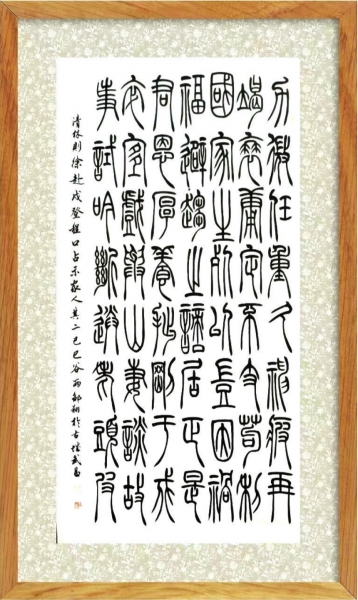 力微任重久神疲再
竭衰庸定不支苟利
國家生死以豈因禍
福避趨之謫居正是
君恩厚養拙剛于戍
卒宜戲與山妻談故
事試吟斷送老頭皮
清林則徐赴戍登程口占示家人其二己巳谷雨於古